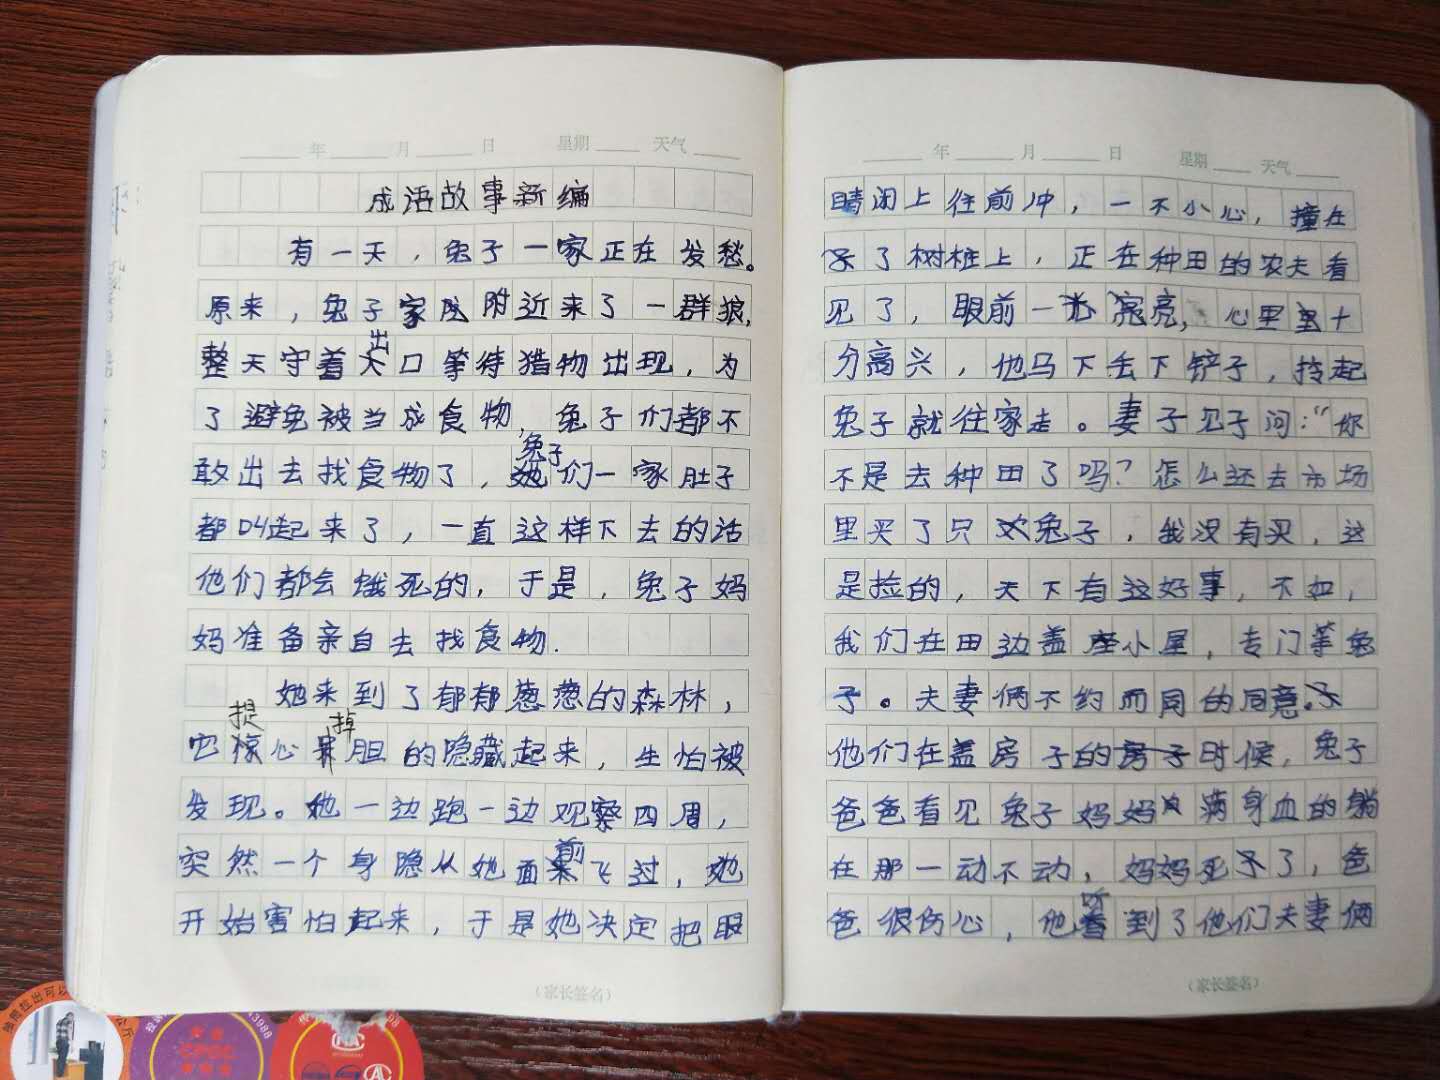 年 月 日 星期 天气
成语故事新编
有一天，兔子一家正在发愁。
原来，兔子家附近来了一群狼，
整天守着出口等待猎物出现，为
了避免被当成食物，兔子们都不
敢出去找食物了，兔子们一家肚子
都叫起来了，一直这样下去的话
他们都会饿死的，于是，兔子妈
妈准备亲自去找食物.
她来到了郁郁葱葱的森林，
它提心掉胆的隐藏起来，生怕被
发现。她一边跑一边观察四周，
突然一个身隐从她面前飞过，她
开始害怕起来，于是她决定把眼
（家长签名）
年 月 日 星期 天气
睛闭上往前冲，一不小心，撞在
了树桩上，正在种田的农夫看
见了，眼前一亮，心里十
分高兴，他马下丢下铲子，拎起
兔子就往家走。妻子见子问："你
不是去种田了吗？怎么还去市场
里买了只兔子，我没有买，这
是捡的，天下有这好事，不如，
我们在田边盖座小屋，专门等兔
子。夫妻俩不约而同的同意.
他们在盖房子的时候，兔子
爸爸看见兔子妈妈满身血的躺
在那一动不动，妈妈死了，爸
爸很伤心，他听到了他们夫妻俩
（家长签名）
43988